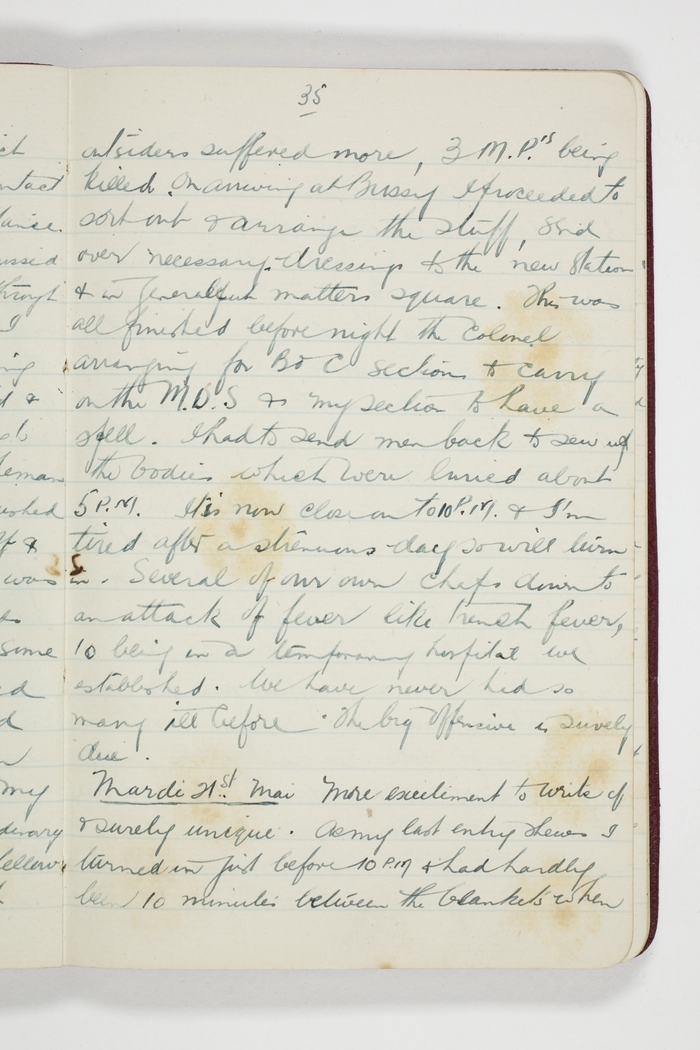 35
outsiders suffered more, 3 M.P.'s being
killed. On arriving at Bussy I proceeded to
sort out & arrange the stuff, send
over necessary dressings to the new station
& in general put matters square. This was
all finished before night the Colonel
arranging for B & C sections to carry
on the M.D.S & my section to have a
spell. I had to send men back to sew up
the bodies which were buried about
5 P.M. It is now close on to 10 P.M. & I'm
tired after a strenuous day so will turn
in. Several of our own chaps down to
an attack of fever like trench fever,
10 being in a temporary hospital we
established. We have never had so
many ill before. The big offensive is surely
due.
Mardi 21st. Mai More excitement to write of
& surely unique. As my last entry shews I
turned in just before 10 P.M & had hardly
been 10 minutes between the blankets when